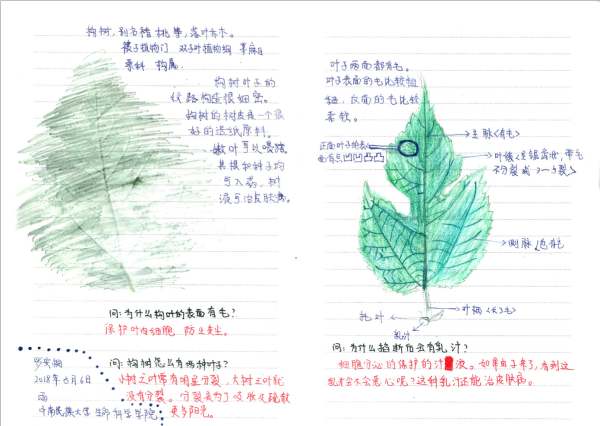 构树，别名楮桃等，落叶乔木。
被子植物门 双子叶植物纲 荨麻目
桑科 构属
构树叶子的
纹路构造很细密。
构树的树皮是一个很
好的造纸原料。
嫩叶可以喂猪
其根和种子均
可入药，树
液可治皮肤病。
问：为什么构叶的表面有毛？
保护叶肉细胞 防止灰尘。
问：构树怎么有两种叶子？
小树之叶常有明显分裂，大树之叶就
没有分裂。分裂是为了吸收及疏散
更多阳光。
2018年6月6日
雨
中南民族大学 生命科学学院
叶子两面都有毛。
叶子表面的毛比较粗
糙，反面的毛比较
柔软。
正面叶子的表
面有点凹凹凸凸
主脉〈有毛〉
叶缘〈呈锯齿状，带毛
不分裂或 3~5裂〉
侧脉 也有毛
托叶
叶柄〈长了毛〉
乳汁
问：为什么掐断后会有乳汁？
细胞分泌的保护的汁液。如果虫子来了，看到这
乳汁会不会恶心呢？这种乳汁还能治皮肤病。